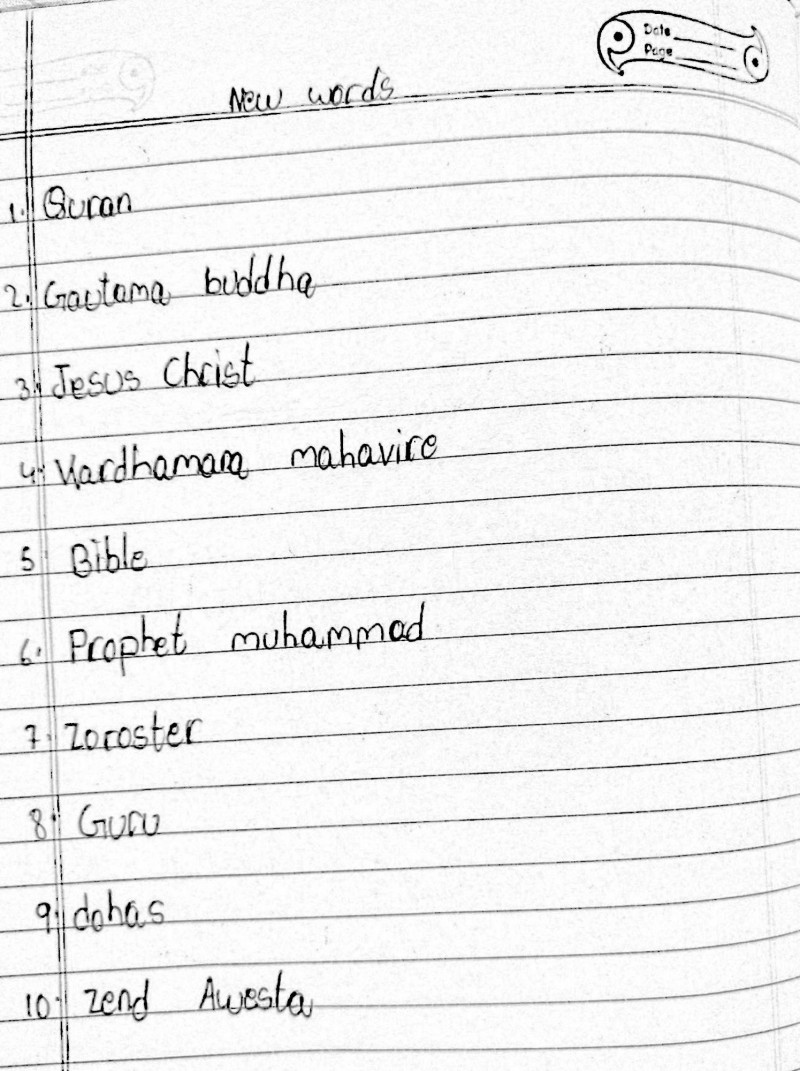 Date
Page
New words
1. Quran
2. Gautama buddha
3. Jesus Christ
4. Vardhamana mahavire
5 Bible
6. Prophet muhammad
7. Zoroster
8. Guru
9. dohas
10. Zend Awesta